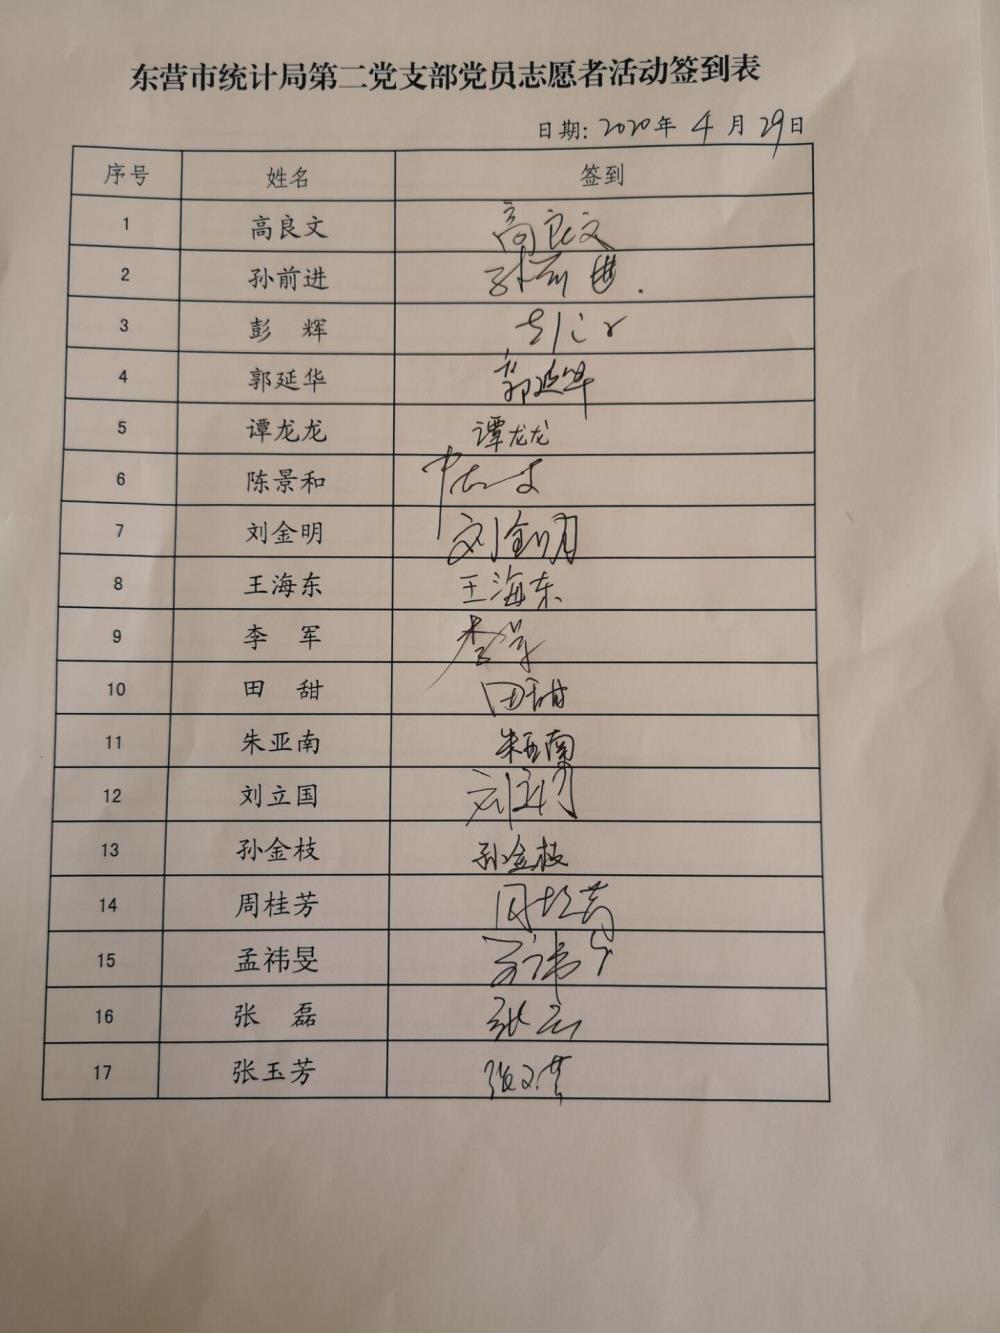 东营市统计局第二党支部党员志愿者活动签到表
日期: 2020年 4 月 29日
序号 姓名 签到
1 高良文 高良文
2 孙前进 孙前进
3 彭 辉
4 郭延华 郭延华
5 谭龙龙 谭龙龙
6 陈景和
7 刘金明 刘金明
8 王海东 王海东
9 李 军 李军
10 田 甜 田甜
11 朱亚南 朱亚南
12 刘立国 刘立国
13 孙金枝 孙金枝
14 周桂芳 周桂芳
15 孟祎旻
16 张 磊 张磊
17 张玉芳 张玉芳